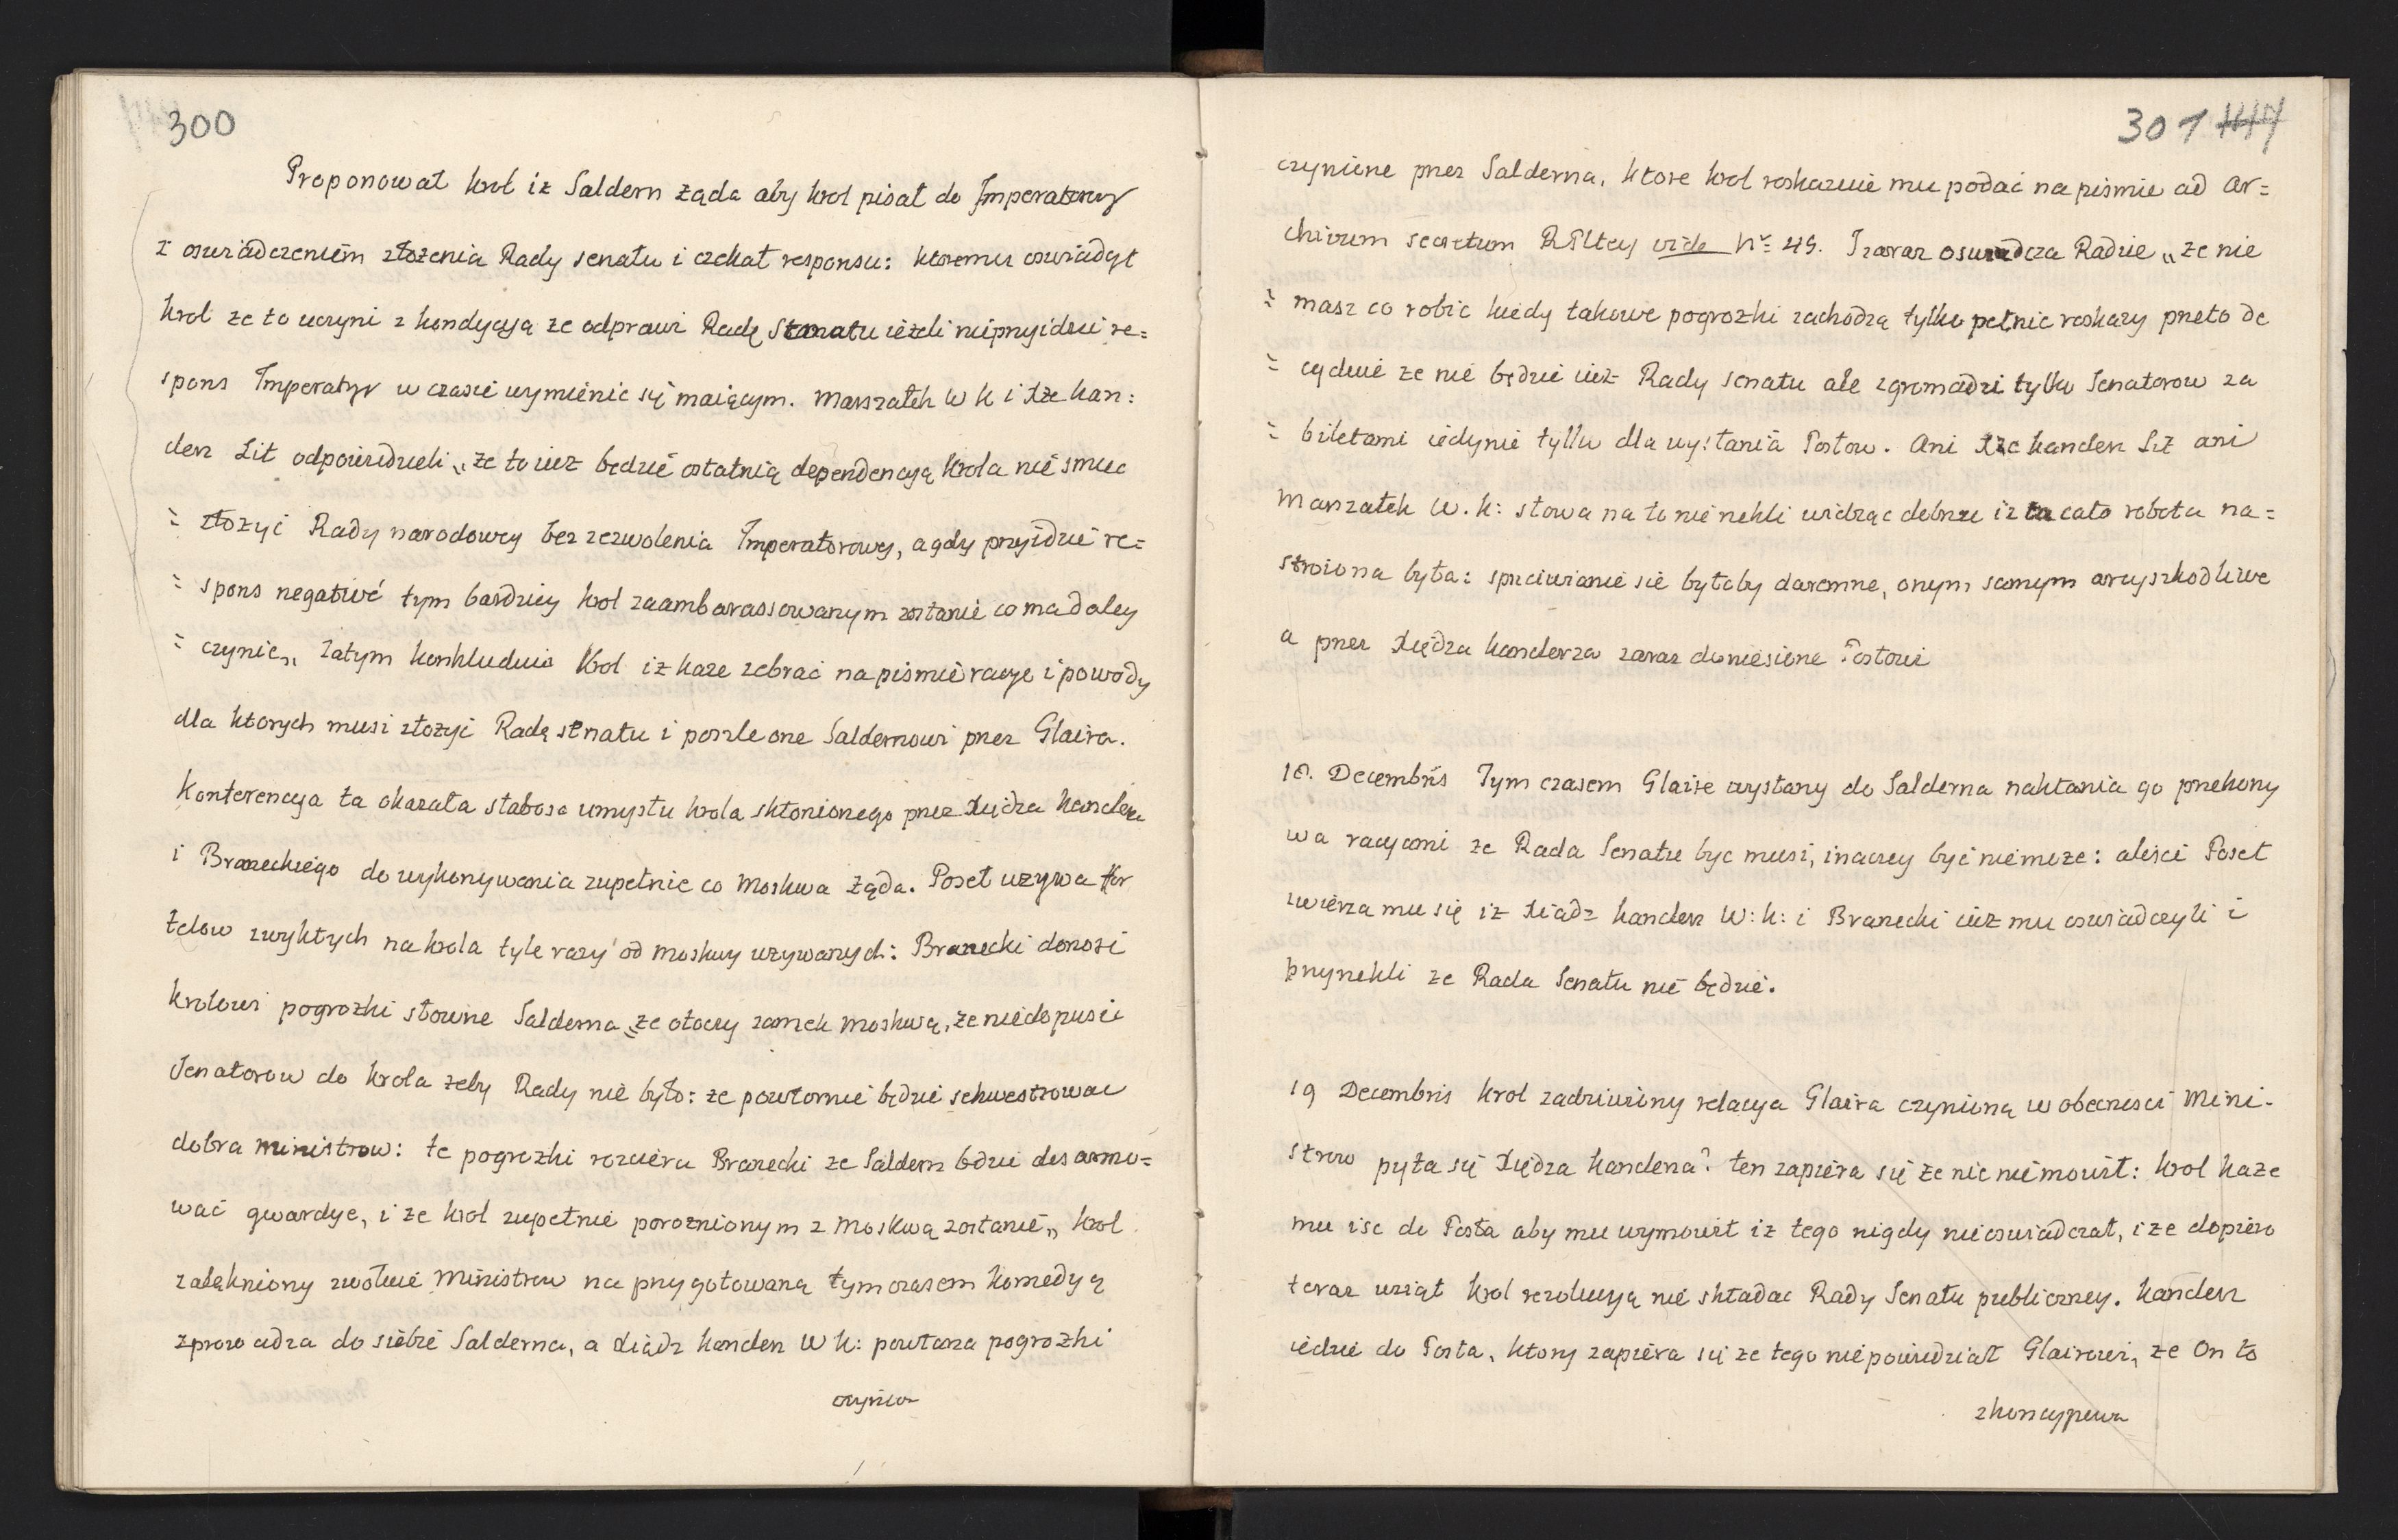 300
Proponował krol iz Saldern ząda aby krol pisał do Imperatorowy
z oswiadczeniem złożenia Rady senatu i czekał responsu: ktoremu oswiadczył
krol ze to uczyni z kondycyą ze odprawi Radę Senatu iezeli nieprzyidzie re=
spons Imperatory w czasie wymienic się maiącym. Marszałek W K i Xze kan=
clerz Lit odpowiedzieli „ze to iuz będzie ostatnią dependencyą krola nie smiec
= złożyć Rady narodowey bez zezwolenia Imperatorowey, a gdy przyidzie re=
= spons negativé tym bardziey krol zaambarassowanym zostanie co ma daley
= czynic„ Zatym konkluduie Krol iz kaze zebrać na pismie racye i powody
dla ktorych musi złożyć Radę senatu i poszle one Saldernowi przez Glaira.
Konferencya ta okazała słabosc umysłu krola skłonionego przez Xiędza kanclerza
i Braneckiego do wykonywania zupełnie co Moskwa żąda. Poseł uzywa for
telow zwykłych na krola tyle razy od Moskwy uzywanych: Branecki donosi
krolowi pogrozki słowne Salderna „ze otoczy zamek Moskwą, ze niedopusci
Senatorow do krola zeby Rady nie było: ze powtornie będzie sekwestrowac
dobra ministrow: te pogrozki rozsiera Branecki ze Saldern bdzie desarmo=
wać gwardye, i ze krol zupełnie poroznionym z Moskwą zostanie„ krol
zalękniony zwołuie Ministrow na przygotowaną tymczasem komedyą
zprowadza do siebie Salderna, a Xiądz kanclerz W K: powtarza pogrozki
czynio
301 144
czynione przez Salderna, ktore krol roskazuie mu podać na pismie ad ar=
chivum secretum RPltey vide Nº 49. I zaraz oswiadcza Radzie „ze nie
= masz co robic kiedy takowe pogrozki zachodzą tylko pełnic roskazy przeto de
= cyduie ze nie będzie iuz Rady senatu ale zgromadzi tylko Senatorow za
= biletami iedynie tylko dla wysłania Posłow. Ani Xze kanclerz Lit ani
Marszałek W. K: słowa na to nie rzekli widząc dobrze iz ta cała robota na=
stroiona była: sprzeciwianie sie byłoby daremne, onym samym arcyszkodliwe
a przez Xiędza kanclerza zaraz doniesione Posłowi
18. Decembris Tym czasem Glaire wysłany do Salderna nakłania go przekony
wa racyami ze Rada Senatu byc musi, inaczey być nie moze: aleści Poseł
zwierza mu się iz Xiądz kanclerz W: K: i Branecki iuz mu oswiadczyli i
przyrzekli ze Rada Senatu nie będzie.
19 Decembris krol zadziwiony relacya Glaira czynioną w obecnosci Mini-
strow pyta się Xiędza kanclerza? ten zapiera się ze nic nie mowił: krol kaze
mu isc do Posła aby mu wymowił iz tego nigdy nieoswiadczał, i ze dopiero
teraz wziął krol rezolucyą nie składac Rady Senatu publiczney. Kanclerz
iedzie do Posła, ktory zapiera się ze tego niepowiedział Glairowi, ze On to
zkoncypowa